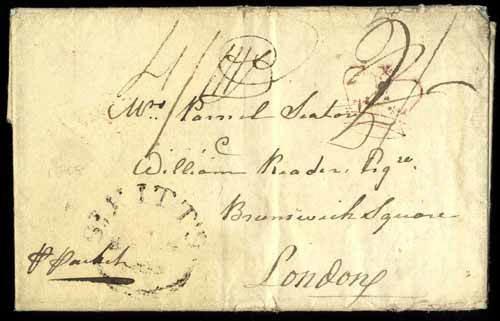 Mrs Parnel Seaton
C
William Reader, Esqre.
Brunswick Square
London
ST KITT'S
P Packet